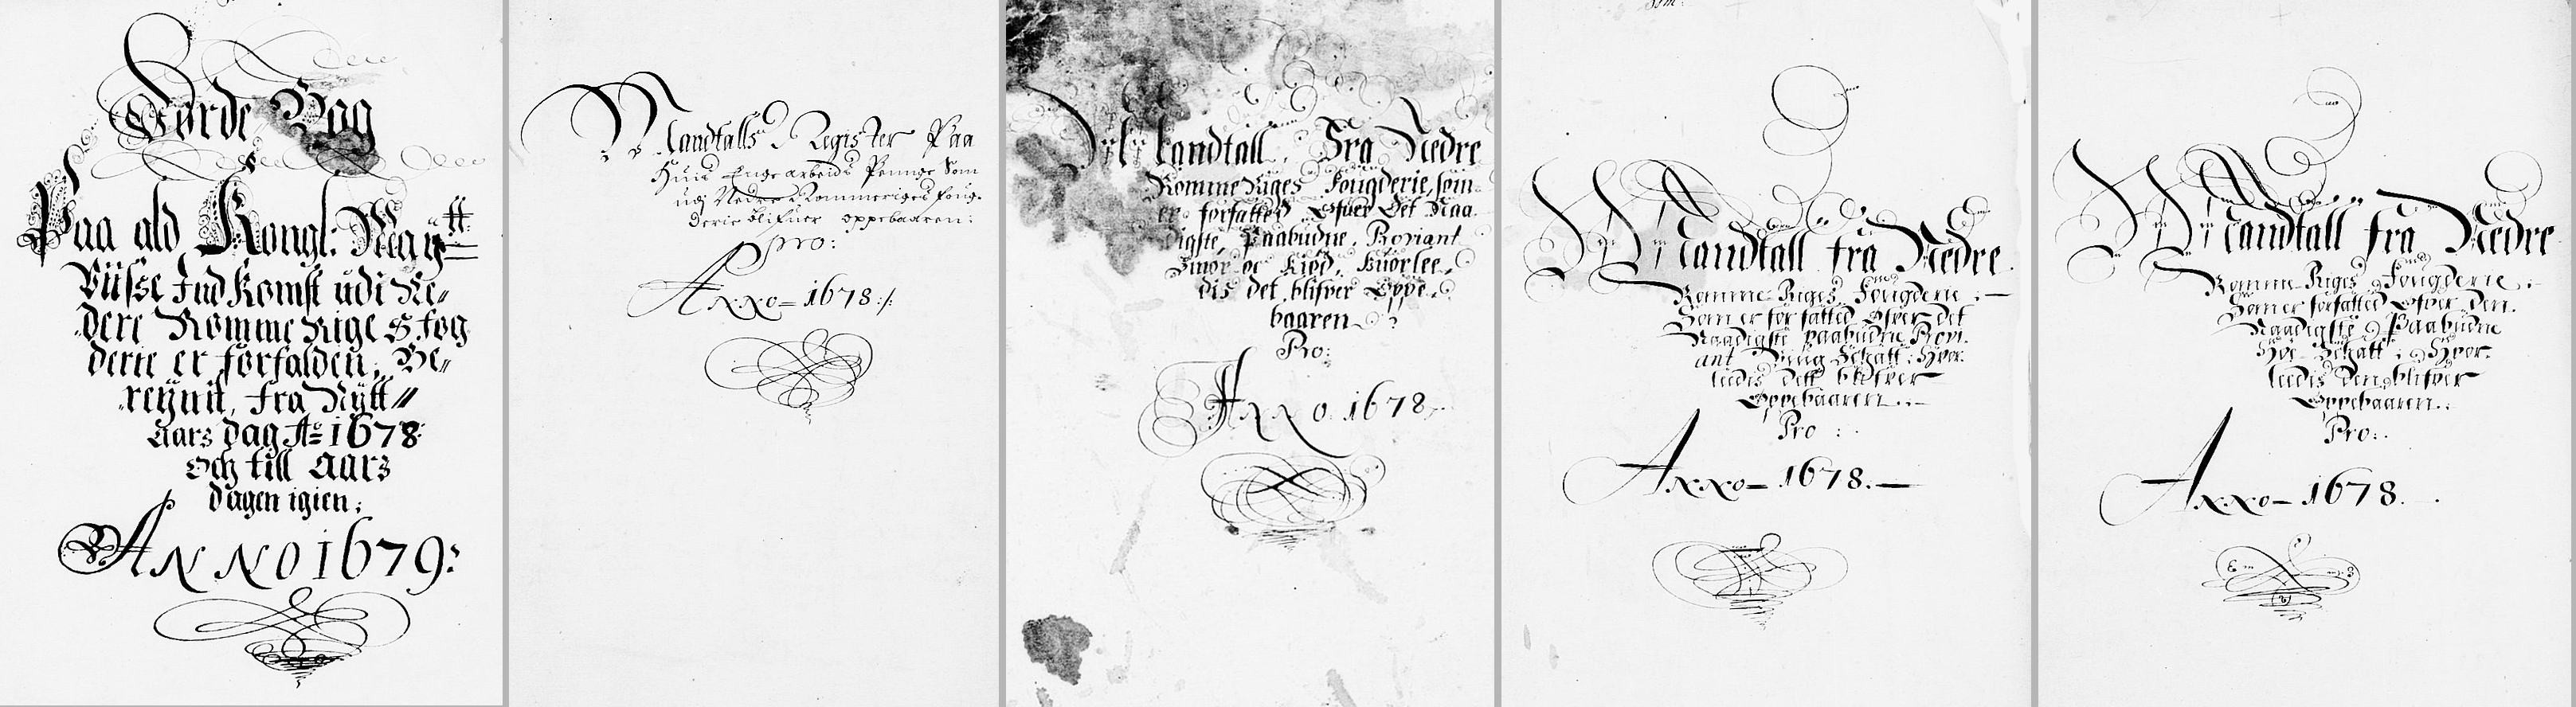 Jorde Bog
Paa ald Kongl: Maytt:
Visse Ind Komst udi Ne„
dere Romme Rige s fog
derie er forfalden, Be„
reignit, fra Nytt„
aars dag Ao 1678
Och till aars
dagen igien:
ANNO 1679:
Mandtalls Register Paa
Huis Engearbeids Penge Som
udj Nedre Rommeriges foug-
derie blifuer oppebaaren:
pro:
Anno 1678:/:
Mandtall Fra Nedre
Romme Riges Fougderie, som
er forfatted Ofver Det Naa
digste, Paabudne, Proviant
Smør oc Kiød, Huorlee
dis det blifver Oppe
baaren
Pro:
Anno. 1678
Mandtall fra Nedre
Romme-Riges Fougderie :—
Som er forfatted Ofver det
Naadigste paabudne Provi-
ant Schatt: Hvor-
leedis dett blifver
Oppebaaren.—
Pro :
Anno 1678.—
Mandtall fra Nedre
Romme-Riges Fougderie :-
Som er forfatted Ofver den
Naadigste Paabudne
Schatt: Hvor-
leedis den blifver
Oppebaaren:
Pro:
Anno 1678.